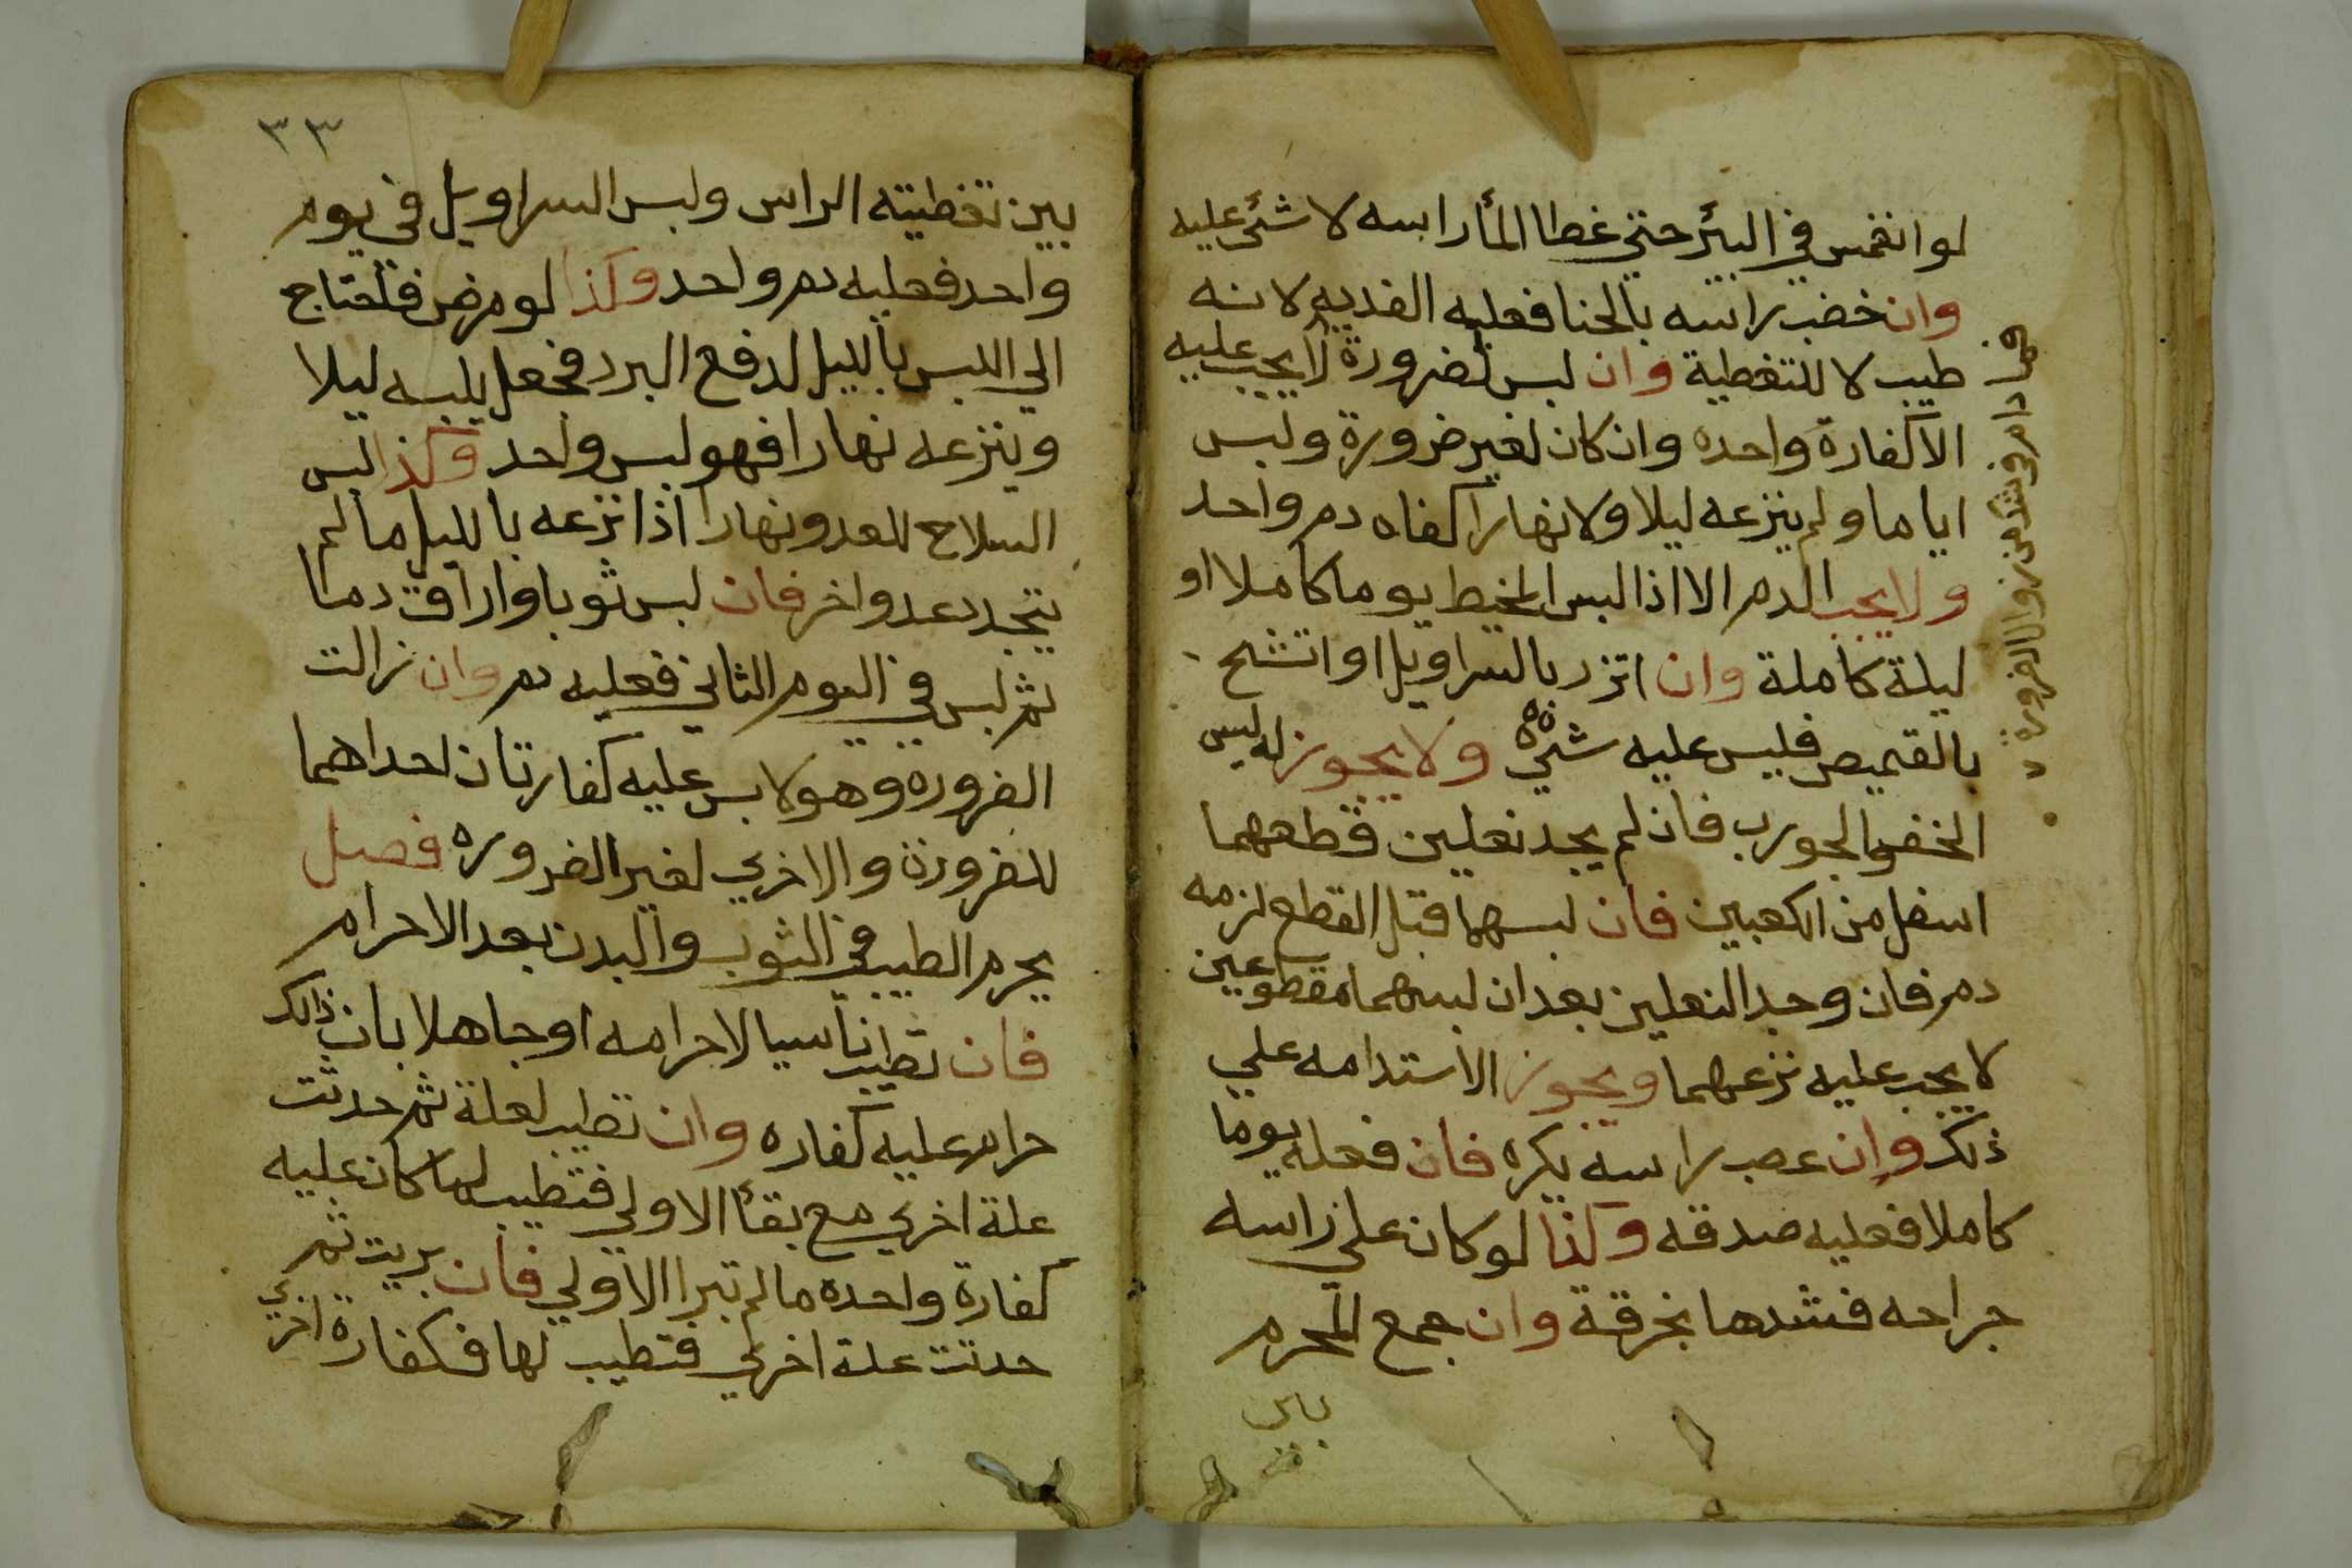 لو انغمس في البئر حتي غطا المأ راسه لا شئ عليه
وان خضب راسه بالحنا فعليه الفديه لانه
طيب لا للتغطية وان لبس لضرورة لا يجب عليه
الا كفارة واحده وان كان لغير ضرورة ولبس
اياما ولم ينزعه ليلا ولا نهارا كفاه دم واحد
ولا يجب الدم الا اذا لبس المخيط يوما كاملا او
ليلة كاملة وان اتزر بالسراويل او اتشح
بالقميص فليس عليه شي ولا يجوز له لبس
الخف والجورب فان لم يجد نعلين قطعهما
اسفل من الكعبين فان لبسهما قبل القطع لزمه
دم فان وجد النعلين بعد ان لبسهما مقطوعين
لا يجب عليه نزعهما ويجوز الاستدامه علي
ذلك وان عصب راسه يكره فان فعله يوما
كاملا فعليه صدقه وكذا لو كان علي راسه
جراحه فشدها بخرقة وان جمع المحرم
بين
فمن دام في شك من زوال الضرورة
٣٣
بين تغطيته الراس ولبس السراويل في يوم
واحد فعليه دم واحد وكذا لو مرض فاحتاج
الي اللبس بالليل لدفع البرد فجعل يلبسه ليلا
وينزعه نهارا فهو لبس واحد وكذا لبس
السلاح للعدو نهارا اذا نزعه بالليل ما لم
يتجدد عدو اخر فان لبس ثوبا واراق دما
ثم لبس في اليوم الثاني فعليه دم وان زالت
الضروره وهو لابس عليه كفارتان احداهما
للضرورة والاخري لغير الضروره فصل
يحرم الطيب في الثوب والبدن بعد الاحرام
فان تطيب ناسيا لاحرامه او جاهلا بان ذالك
حرام عليه كفاره وان تطيب لعلة ثم حدثت
علة اخري مع بقأ الاولي فتطيب لها كان عليه
كفارة واحده ما لم تبرا الاولي فان بريت ثم
حدثت علة اخري فتطيب لها فكفارة اخري